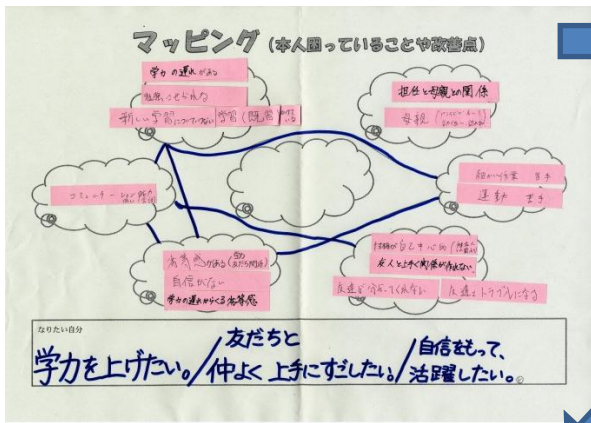 マッピング (本人困っていることや改善点)
学力の遅れがある
新しい学習についていけない
学習
担任と母親との関係
母親
細かい作業 苦手
運動 苦手
コミュニケーション能力
劣等感がある
自信がない
学力の遅れからくる劣等感
性格が自己中心的
友人と上手く関係が作れない
友達が分かってくれない
友達とトラブルになる
なりたい自分
学力を上げたい。/友だちと仲よく上手にすごしたい。/自信をもって、活躍したい。